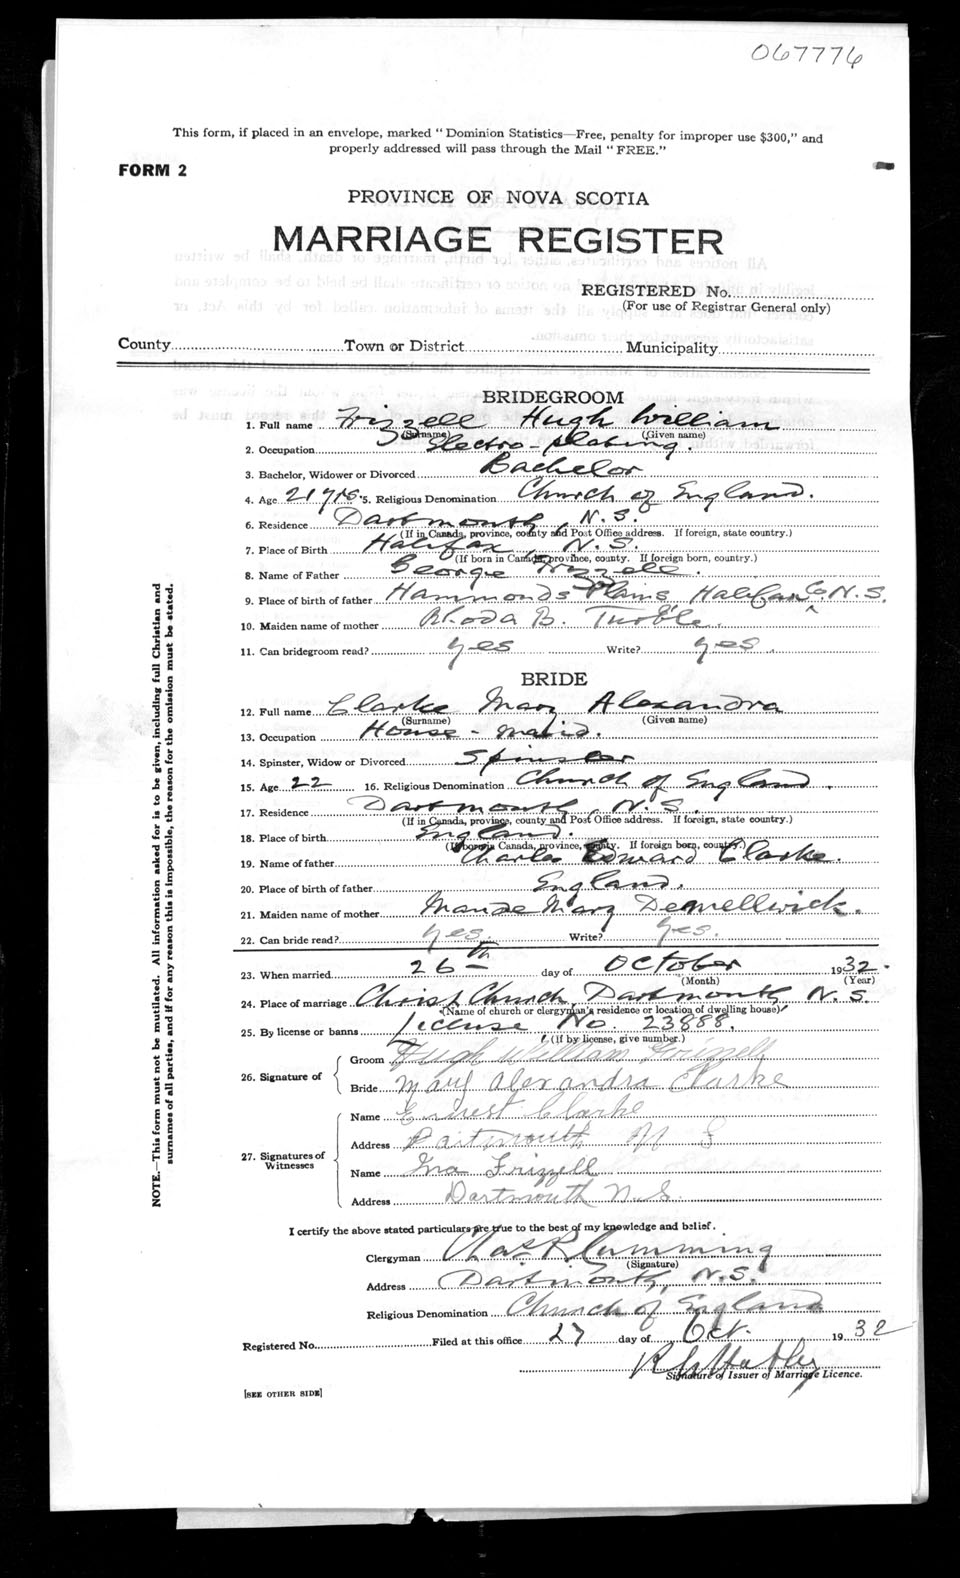 067776
This form, if placed in an envelope, marked " Dominion Statistics—Free, penalty for improper use $300," and
properly addressed will pass through the Mail " FREE."
FORM 2
PROVINCE OF NOVA SCOTIA
MARRIAGE REGISTER
REGISTERED No.
(For use of Registrar General only)
County Town or District Municipality
BRIDEGROOM
1. Full name Frizzell Hugh William
(Surname) (Given name)
2. Occupation Electro-plating.
3. Bachelor, Widower or Divorced Bachelor
4. Age 21 yrs. 5. Religious Denomination Church of England.
6. Residence Dartmouth, N.S.
(If in Canada, province, county and Post Office address. If foreign, state country.)
7. Place of Birth Halifax, N.S.
(If born in Canada, province, county. If foreign born, country.)
8. Name of Father George Frizzell.
9. Place of birth of father Hammonds Plains Halifax Co N.S.
10. Maiden name of mother Rhoda B.
11. Can bridegroom read? yes Write? yes
BRIDE
12. Full name Clarke Mary Alexandra
(Surname) (Given name)
13. Occupation House-maid.
14. Spinster, Widow or Divorced Spinster
15. Age 22 16. Religious Denomination Church of England.
17. Residence Dartmouth, N.S.
(If in Canada, province, county and Post Office address. If foreign, state country.)
18. Place of birth England.
(If born in Canada, province, county. If foreign born, country.)
19. Name of father Charles Edward Clarke.
20. Place of birth of father England.
21. Maiden name of mother Maude Mary
22. Can bride read? yes. Write? yes.
23. When married 26th day of October 1932.
(Month) (Year)
24. Place of marriage Christ Church, Dartmouth, N.S.
(Name of church or clergyman's residence or location of dwelling house)
25. By license or banns License No. 23888.
(If by license, give number.)
26. Signature of
Groom Hugh William Frizzell
Bride Mary Alexandra Clarke
27. Signatures of Witnesses
Name Ernest Clarke
Address Dartmouth N S
Name Ina Frizzell
Address Dartmouth N.S.
I certify the above stated particulars are true to the best of my knowledge and belief.
Clergyman Chas R Cumming
(Signature)
Address Dartmouth, N.S.
Religious Denomination Church of England
Registered No. Filed at this office 27 day of Oct. 1932
Signature of Issuer of Marriage Licence.
[SEE OTHER SIDE]
NOTE.—This form must not be mutilated. All information asked for is to be given, including full Christian and
surnames of all parties, and if for any reason this is impossible, the reason for the omission must be stated.